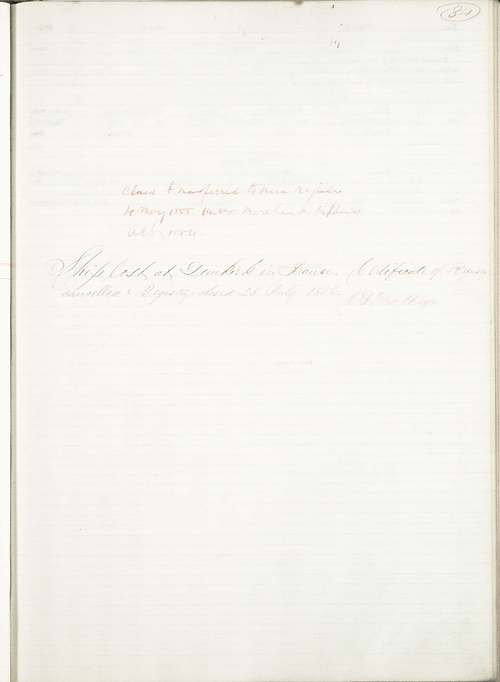 84
Closed & transferred to new Register
4 May 1855 under Merchant Shipping
Act, 1854
Ship lost at Dunkirk in France Certificate of
cancelled & Registry closed 25 July 186